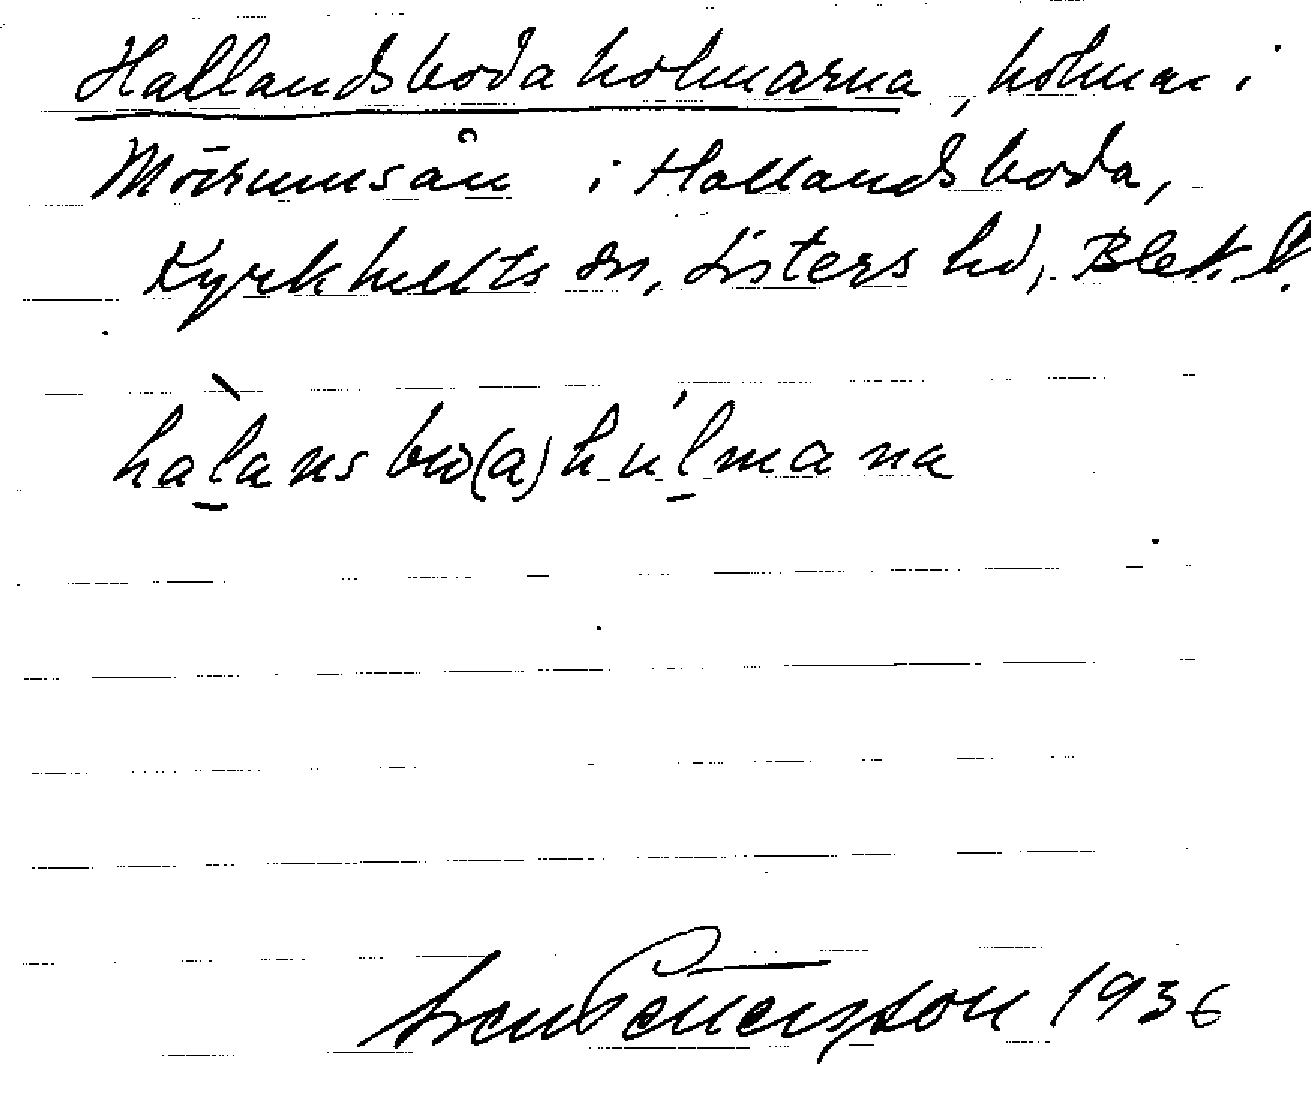 Hallandsbodaholmarna, holmar i
Mörrumsån i Hallandsboda,
Kyrkhults sn, Listers hd, Blek. l.
hàlansbω(a)húlmana
Sven Pettersson 1936